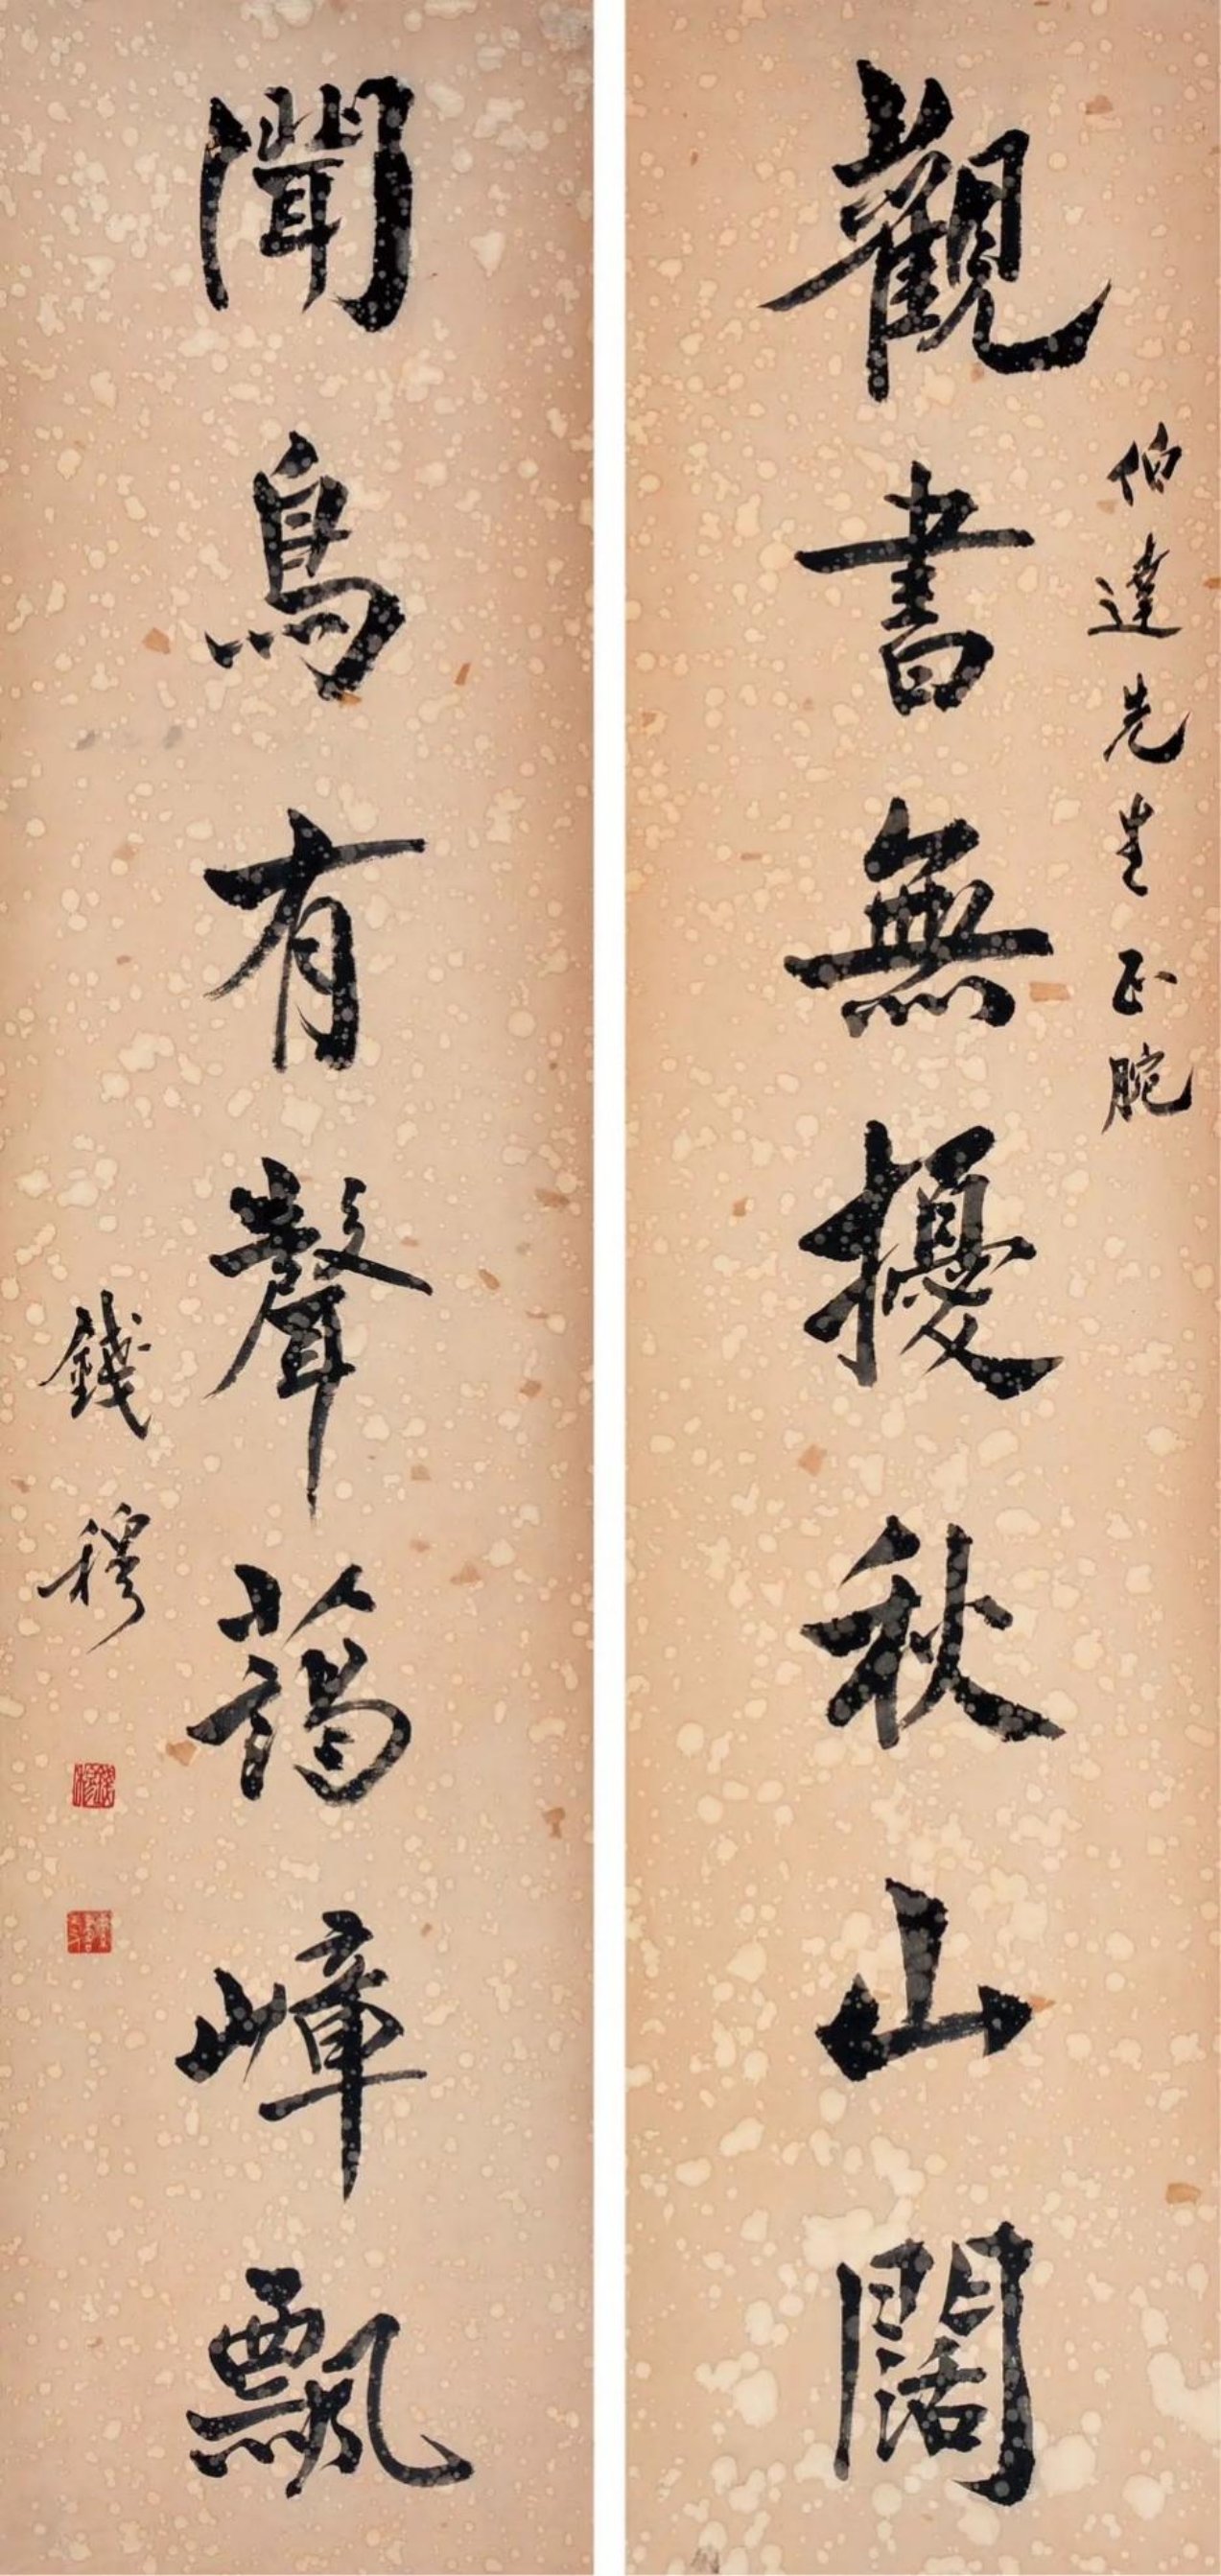 伯達先生正腕
觀書無擾秋山闊
聞鳥有聲藹嶂飄
錢穆
錢穆